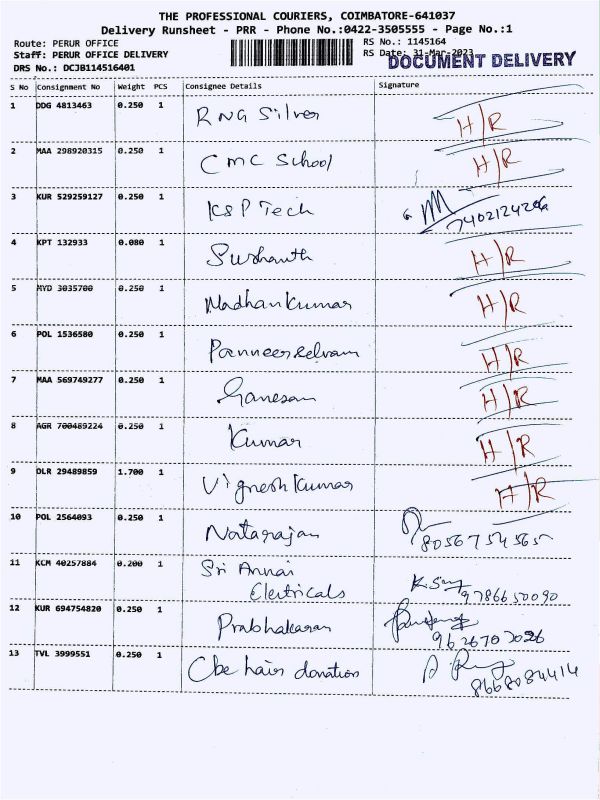 THE PROFESSIONAL COURIERS, COIMBATORE-641037
Delivery Runsheet - PRR - Phone No.:0422-3505555 - Page No.:1
Route: PERUR OFFICE RS No.: 1145164
Staff: PERUR OFFICE DELIVERY RS Date: 31-Mar-2023
DOCUMENT DELIVERY
DRS No.: DCJB114516401
S No Consignment No Weight PCS Consignee Details Signature
1 DDG 4813463 0.250 1 RNG Silver H/R
2 MAA 298920315 0.250 1 CMC School H/R
3 KUR 529259127 0.250 1 KSP Tech 7402124206
4 KPT 132933 0.080 1 Sushanth H/R
5 MYD 3035700 0.250 1 Madhankumar H/R
6 POL 1536580 0.250 1 Panneerselvam H/R
7 MAA 569749277 0.250 1 Ganesan H/R
8 AGR 700489224 0.250 1 Kumar H/R
9 DLR 29489859 1.700 1 Vignesh Kumar H/R
10 POL 2564093 0.250 1 Natarajan 8056754565
11 KCM 40257884 0.200 1 Sri Annai
Electricals 9786650090
12 KUR 694754820 0.250 1 Prabhakaran 9626707026
13 TVL 3999551 0.250 1 Cbe hair donation 8668084414